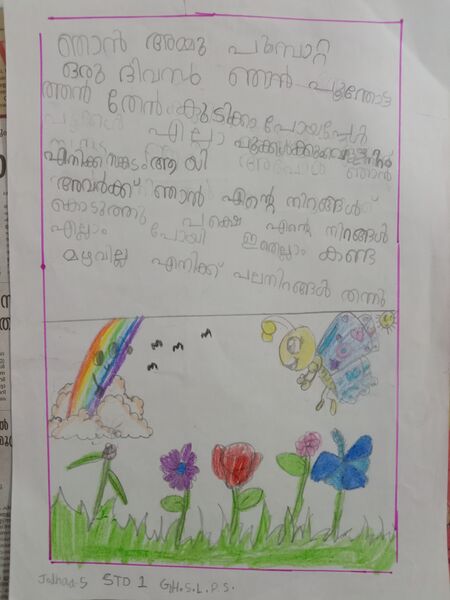 ഞാൻ അമ്മു പൂമ്പാറ്റ
ഒരു ദിവസം ഞാൻ പൂന്തോട്ട
ത്തിൽ തേൻ കുടിക്കാ പോയപ്പോൾ
എല്ലാ പൂക്കൾക്കും
എനിക്ക് സങ്കടം ആ യി അപ്പോൾ ഞാൻ
അവർക്ക് ഞാൻ എന്റെ നിറങ്ങൾ
കൊടുത്തു പക്ഷെ എന്റെ നിറങ്ങൾ
എല്ലാം പോയി ഇതെല്ലാം കണ്ട
മഴവില്ല് എനിക്ക് പലനിറങ്ങൾ തന്നു
STD 1 G.H.S.L.P.S.